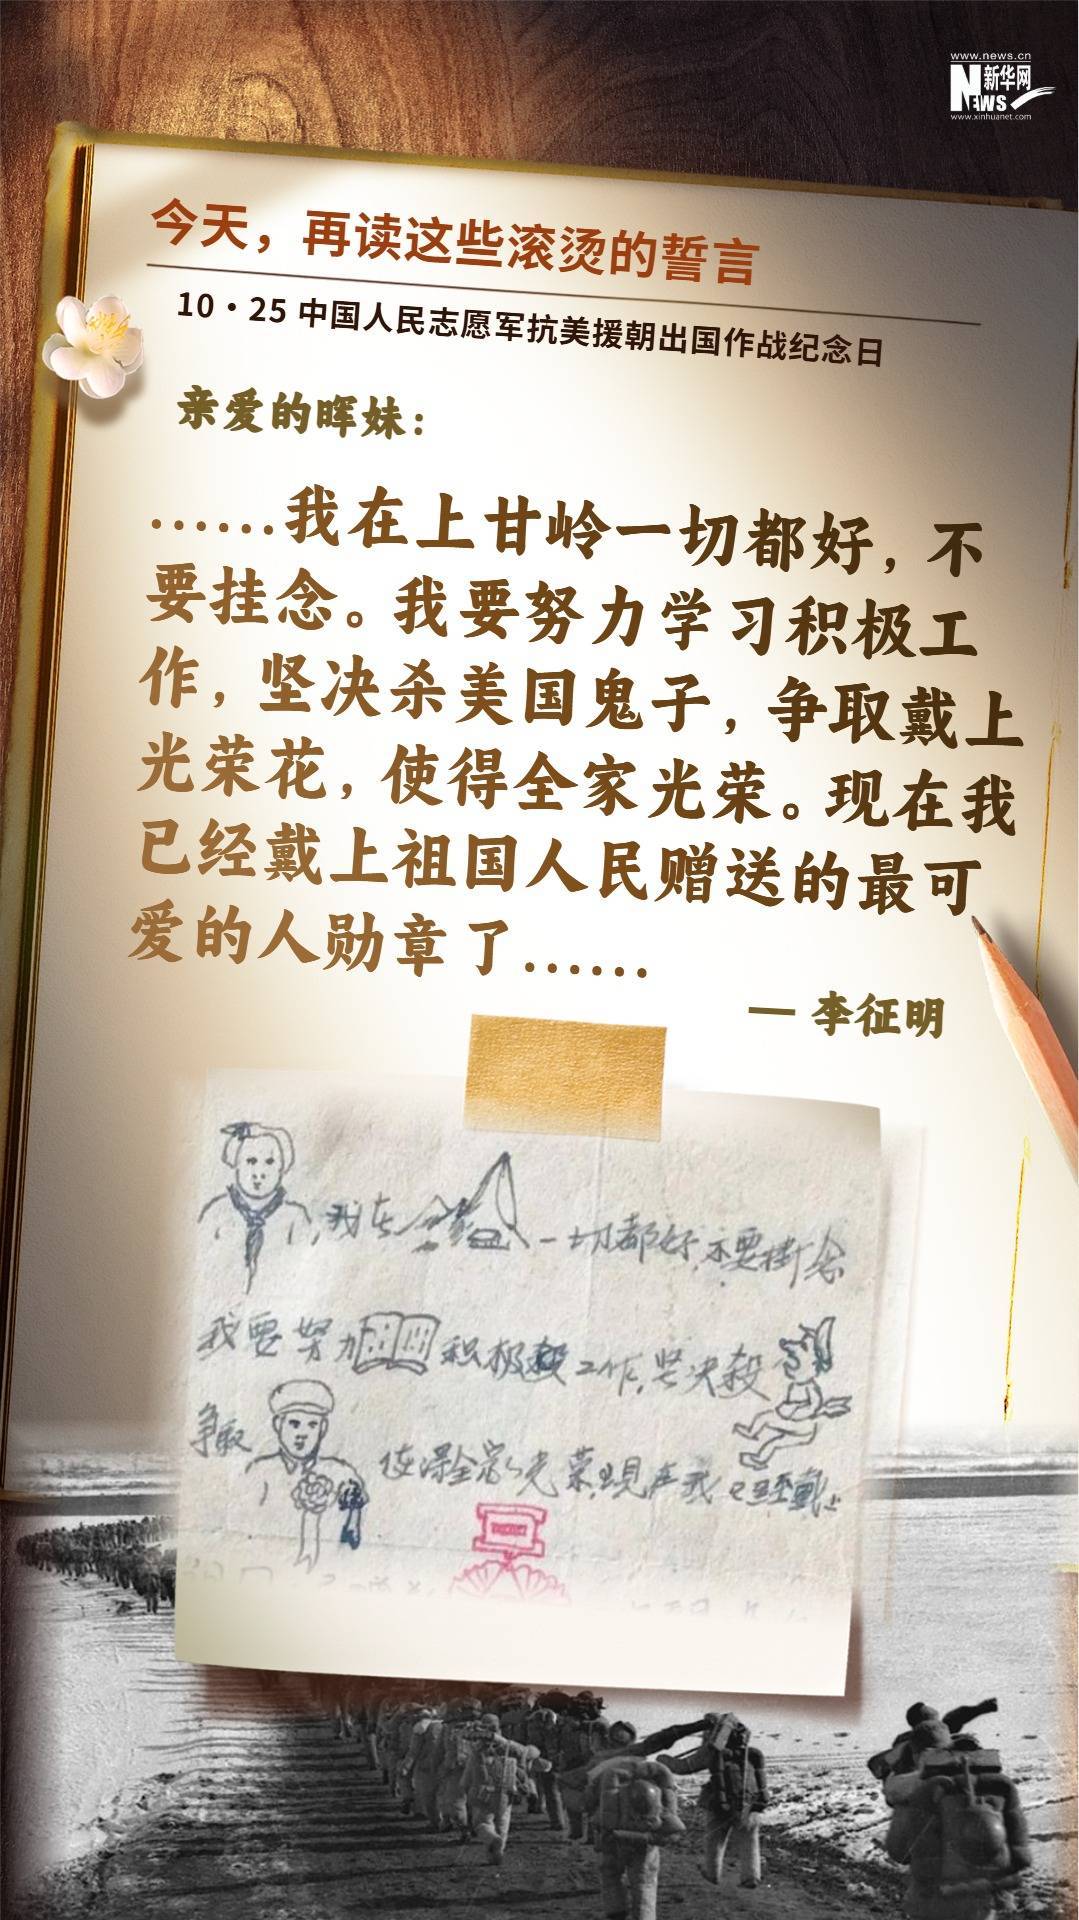 www.news.cn
新华网
NEWS
www.xinhuanet.com
今天，再读这些滚烫的誓言
10·25 中国人民志愿军抗美援朝出国作战纪念日
亲爱的晖妹：
……我在上甘岭一切都好，不
要挂念。我要努力学习积极工
作，坚决杀美国鬼子，争取戴上
光荣花，使得全家光荣。现在我
已经戴上祖国人民赠送的最可
爱的人勋章了……
— 李征明
我在 一切都好，不要掛念
我要努力 积极 工作，坚决殺
争取 使得全家光荣，现在我已经戴上